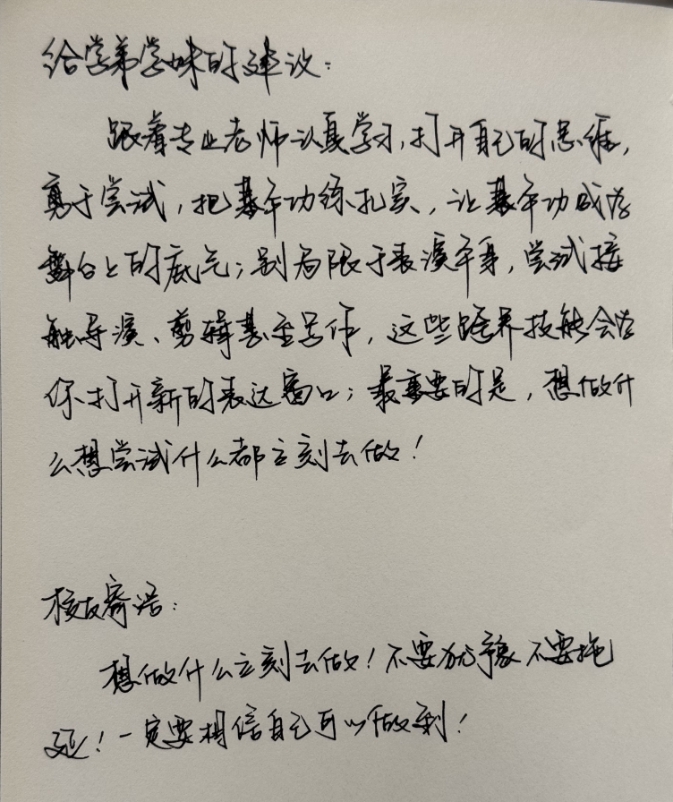 给学弟学妹的建议：
跟着专业老师认真学习，打开自己的思维，
勇于尝试，把基本功练扎实，让基本功成为
舞台上的底气；别局限于表演本身，尝试接
触导演、剪辑甚至写作，这些跨界技能会为
你打开新的表达窗口；最重要的是，想做什
么想尝试什么都立刻去做！
校友寄语：
想做什么立刻去做！不要犹豫不要拖
延！一定要相信自己可以做到！